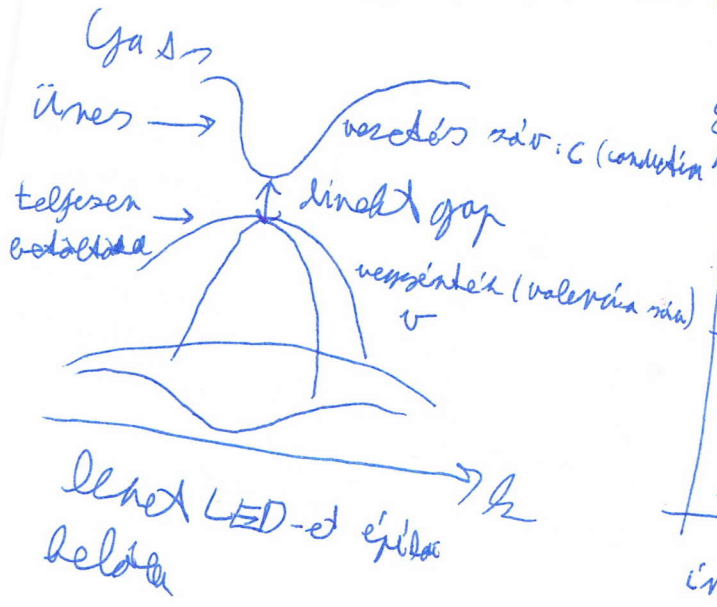 GaAs
üres →
vezetés sáv: C (conduction
teljesen
betöltött
direkt gap
vegyérték (valencia sáv)
v
k
lehet LED-et építeni
belőle